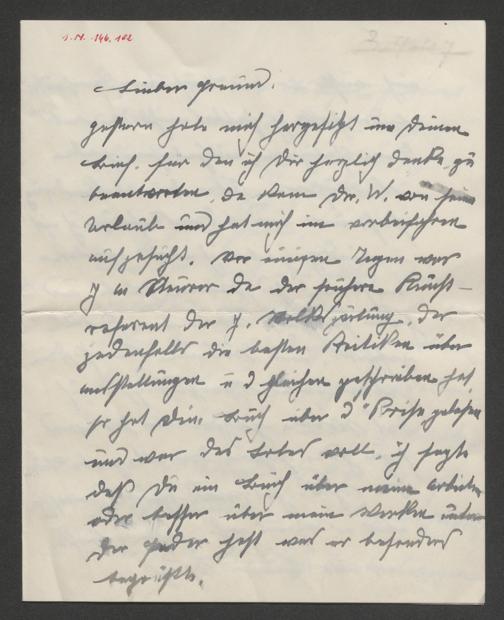 I.N. 146.102
Lieber Freund.
gestern habe mich hergesetzt um Deinen
Brief, für den ich Dir herzlich danke, zu
beantworten, da kam Dr. W. von sein
Urlaub und hat mich im vorbeifahren
aufgesucht. Vor einigen Tagen war
J in da der frühere Kunst-
referent der J. Volkszeitung, der
jedenfalls die besten Kritiken über
Ausstellungen u d gleichen geschrieben hat,
er hat Dein Buch über D gelesen
und war des Lobes voll, ich sagte
daß Du ein Buch über meine Arbeiten
oder besser über mein Werken unter
der Feder hast was er besonders
begrüßte.